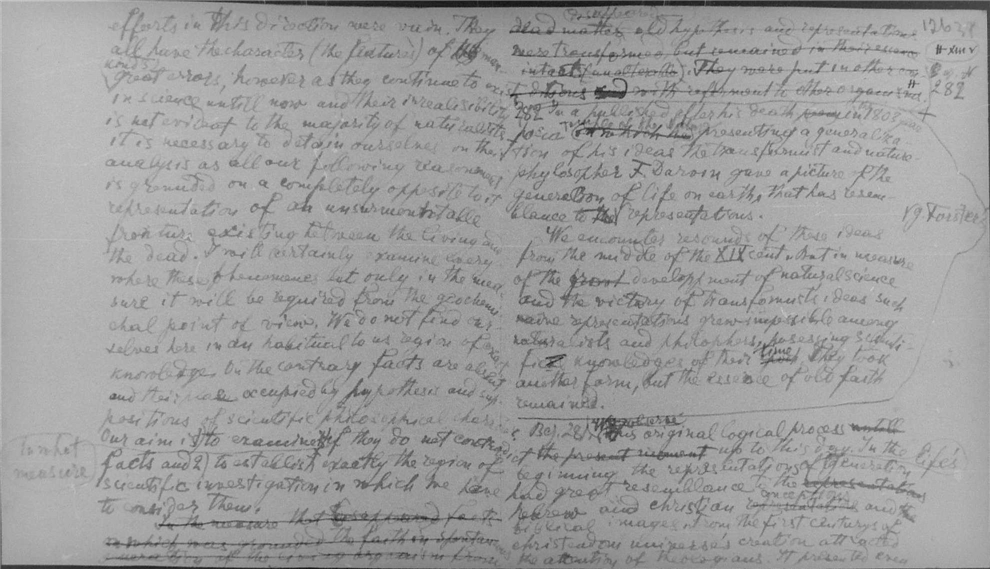 efforts in this direction were vain. They
all have the character (the features) of
great errors, however as they continue to exist
in science untill now and their irrealisibility
is not evident to the majority of naturalists
it is necessary to detain ourselves on their
analysis as all our following reasonment
is grounded on a completely opposite to it
representation of an unsurmontable
fronture existing between the living and
the dead. I will certainly examine every
where these phenomenes but only in the mea-
sure it will be required from the geochemi-
chal point of view. We do not find our-
selves here in an habitual to us region of exact
knowledge. On the contrary facts are absent
and their place occupied by hypothesis and sup-
positions of scientific philosophical
Our aim is to examine if they do not contradict
facts and 2) to establish exactly the region of
scientific investigation in which we have
to consider them.
In the measure that disappeared facts
on which was grounded the faith in spontaneous
generation of the living organism from
In what
measure
disappeared
dead matter old hypothesis and representations
were transformed but remained in their essence
intact (unalterable). They were put in other con-
ditions and with referment to other organisms
282 In a published after his death in 1803
poem presenting a general
tion of his ideas the transformist and nature-
phylosopher E. Darvin gave a picture of the
generation of life on earth, that has resem-
blance to representations.
We encounter resounds of these ideas
from the middle of the XIX cent. But in measure
of the great development of natural science
and the victory of transformists ideas such
naive representations grew impossible among
naturalists and philosophers, possessing scienti-
fic knowledges of their time. They took
another form, but the essence of old faith
remained.
this original logical process untill
the present moment up to this day. In the life's
beginning the representations of generation
had great resemblance to the representations
hebrew and christian conceptions and
biblical images. From the first centurys of
christendom universe's creation attracted
the attention of theologians. It presented even
282